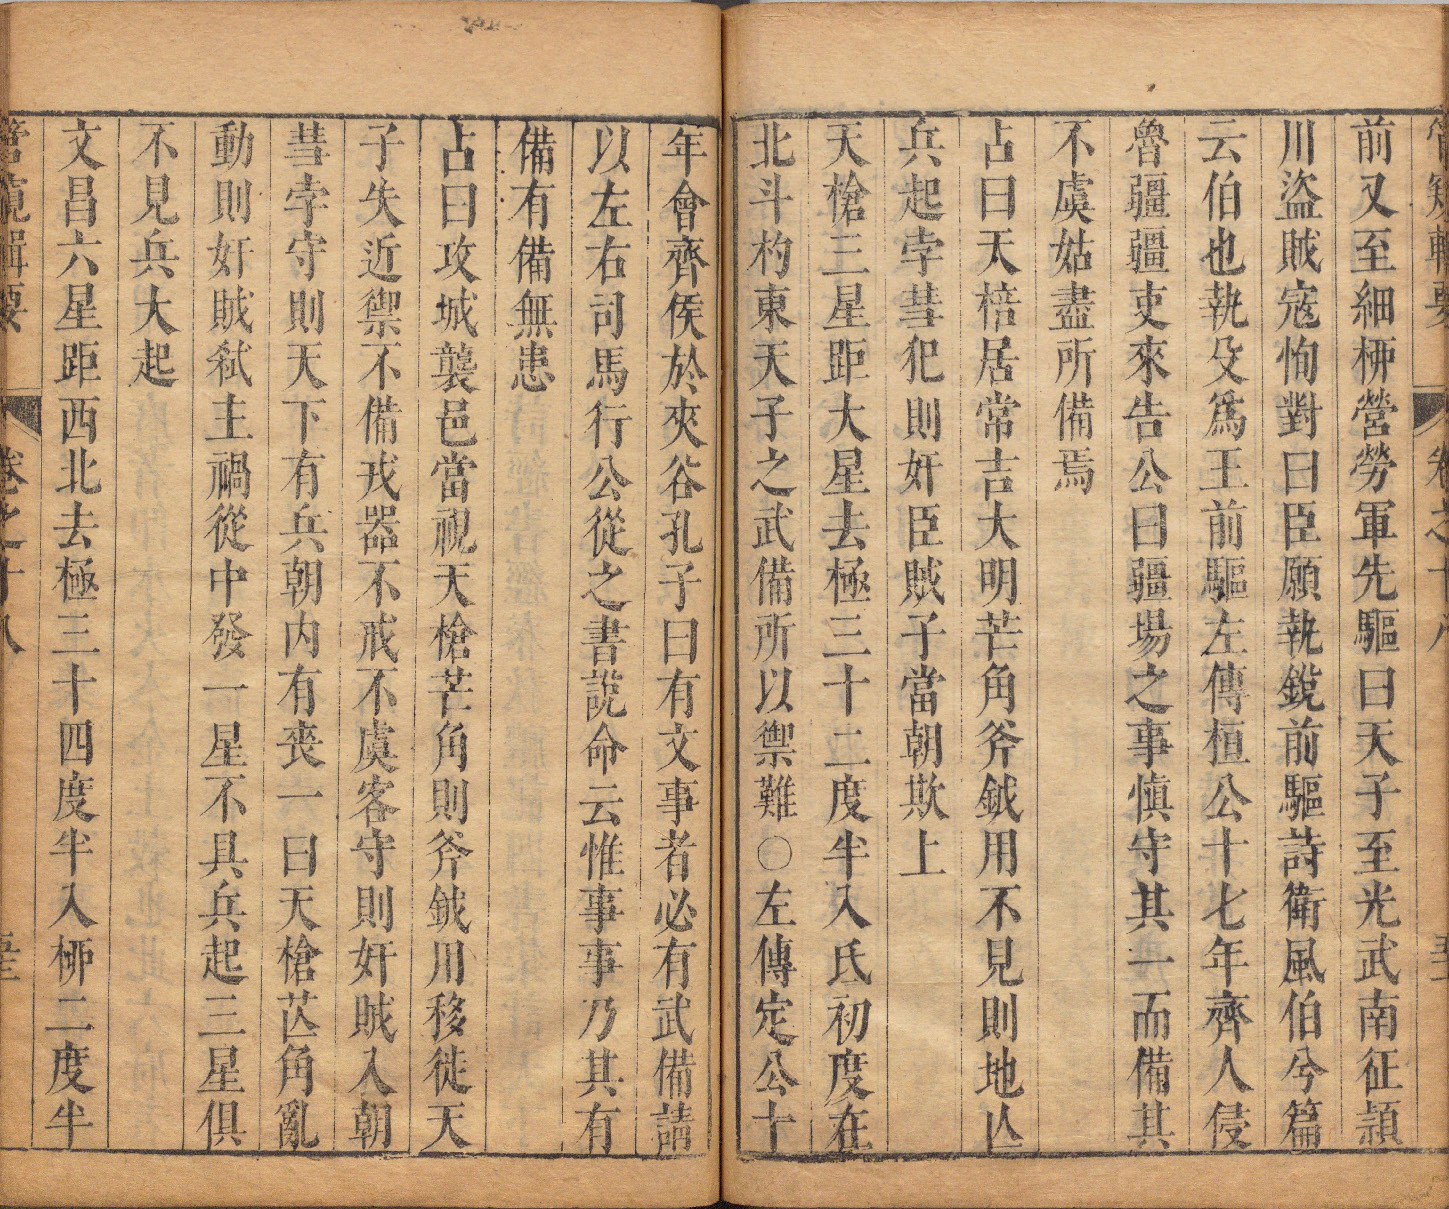 管窺輯要 卷之十八
前又至細柳營勞軍先驅曰天子至光武南征潁
川盜賊寇恂對曰臣願執銳前驅詩衛風伯兮篇
云伯也執殳爲王前驅左傳桓公十七年齊人侵
魯疆疆吏來告公曰疆場之事慎守其一而備其
不虞姑盡所備焉
占曰天棓居常吉大明芒角斧鉞用不見則地亾
兵起孛彗犯則奸臣賊子當朝欺上
天槍三星距大星去極三十二度半入氐初度在
北斗杓東天子之武備所以禦難○左傳定公十
年會齊侯於夾谷孔子曰有文事者必有武備請
以左右司馬行公從之書說命云惟事事乃其有
備有備無患
占曰攻城襲邑當視天槍芒角則斧鉞用移徙天
子失近禦不備戎器不戒不虞客守則奸賊入朝
彗孛守則天下有兵朝内有喪一曰天槍芒角亂
動則奸賊弒主禍從中發一星不具兵起三星俱
不見兵大起
文昌六星距西北去極三十四度半入柳二度半
管窺輯要 卷之十八